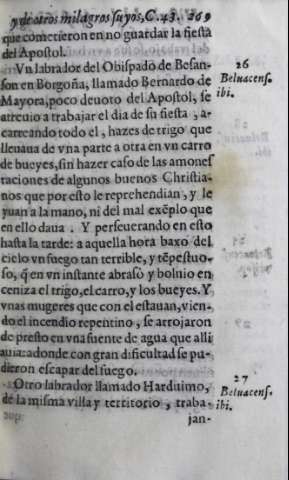 y de otros milagros suyos, C. 43. 269
que cometieron en no guardar la fiesta
del Apostol.
Vn labrador del Obispado de Besan-
son en Borgoña, llamado Bernardo de
Mayora, poco deuoto del Apostol, se
atreuio a trabajar el dia de su fiesta, a-
carreando todo el, hazes de trigo que
lleuaua de vna parte a otra en vn carro
de bueyes, sin hazer caso de las amones
taciones de algunos buenos Christia-
nos que por esto le reprehendian, y le
yuan a la mano, ni del mal exẽplo que
en ello daua. Y perseuerando en esto
hasta la tarde: a aquella hora baxo del
cielo vn fuego tan terrible, y tẽpestuo-
so, q̃ en vn instante abrasò y boluio en
ceniza el trigo, el carro, y los bueyes. Y
vnas mugeres que con el estauan, vien-
do el incendio repentino, se arrojaron
de presto en vna fuente de agua que alli
auia: adonde con gran dificultad se pu-
dieron escapar del fuego.
Otro labrador llamado Harduimo,
de la misma villa y territorio, traba-
jan-
26
Beluacens.
ibi.
27
Beluacens.
ibi.